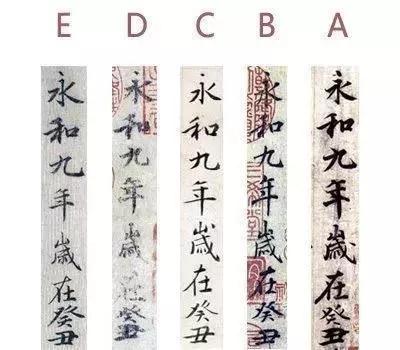 E D C B A
永和九年歲在癸丑
永和九年歲在癸丑
永和九年歲在癸丑
永和九年歲在癸丑
永和九年歲在癸丑